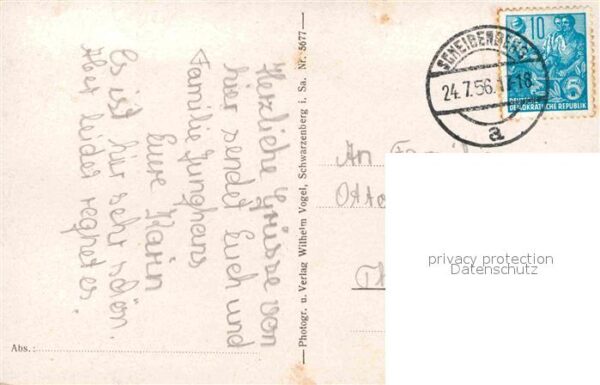 Herzliche Grüsse von
hier sendet Euch und
Familie Junghans
Eure Karin
Es ist hier sehr schön.
Aber leider regnet es.
Abs.:
— Photogr. u. Verlag Wilhelm Vogel, Schwarzenberg i. Sa. Nr. 5677 —
SCHEIBENBERG
24.7.56.
a
10
5
DEUTSCHE
DEMOKRATISCHE REPUBLIK
An
Otto
privacy protection
Datenschutz